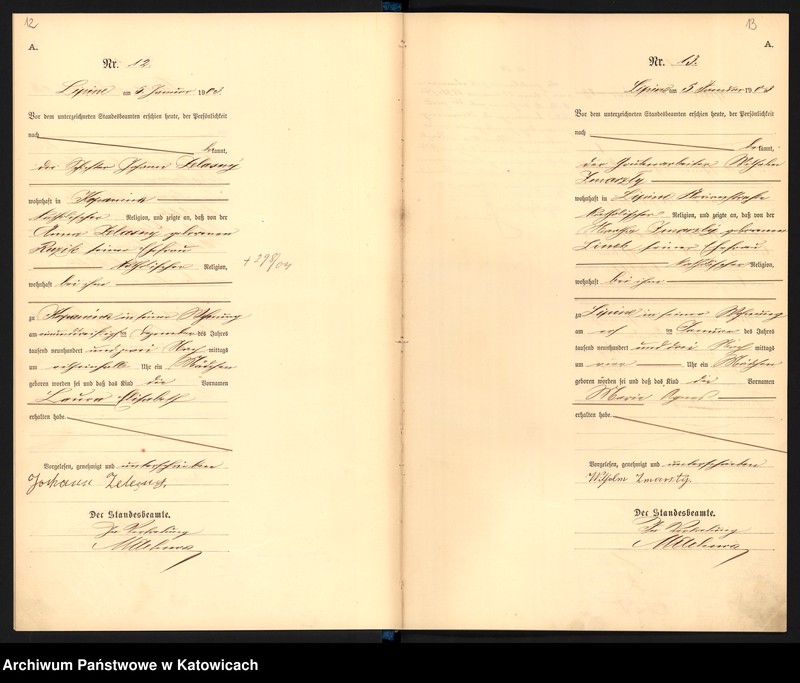 12
A.
Nr. 12.
Lipine am 5 Januar 1903.
Vor dem unterzeichneten Standesbeamten erschien heute, der Persönlichkeit
nach
bekannt,
der Johann Zelasny
wohnhaft in
katholischer Religion, und zeigte an, daß von der
Anna Zelasny geborenen
Ruzik seiner Ehefrau
katholischer Religion,
wohnhaft bei ihm
zu in seiner Wohnung
am einunddreißigsten Dezember des Jahres
tausend neunhundert und zwei Nachmittags
um Uhr ein Mädchen
geboren worden sei und daß das Kind die Vornamen
Laura Elisabeth
erhalten habe
Vorgelesen, genehmigt und unterschrieben
Johann
Der Standesbeamte.
In Vertretung
+ 298/04
13
A.
Nr. 13.
Lipine am 5 Januar 1903
Vor dem unterzeichneten Standesbeamten erschien heute, der Persönlichkeit
nach
bekannt,
der Grubenarbeiter Wilhelm
Zmarzly
wohnhaft in Lipine
katholischer Religion, und zeigte an, daß von der
Martha Zmarzly geborenen
seiner Ehefrau
katholischer Religion,
wohnhaft bei ihm
zu Lipine in seiner Wohnung
am im Januar des Jahres
tausend neunhundert und drei Nachmittags
um vier Uhr ein Mädchen
geboren worden sei und daß das Kind die Vornamen
Marie Agnes
erhalten habe
Vorgelesen, genehmigt und unterschrieben
Wilhelm Zmarzly
Der Standesbeamte.
In Vertretung
Archiwum Państwowe w Katowicach